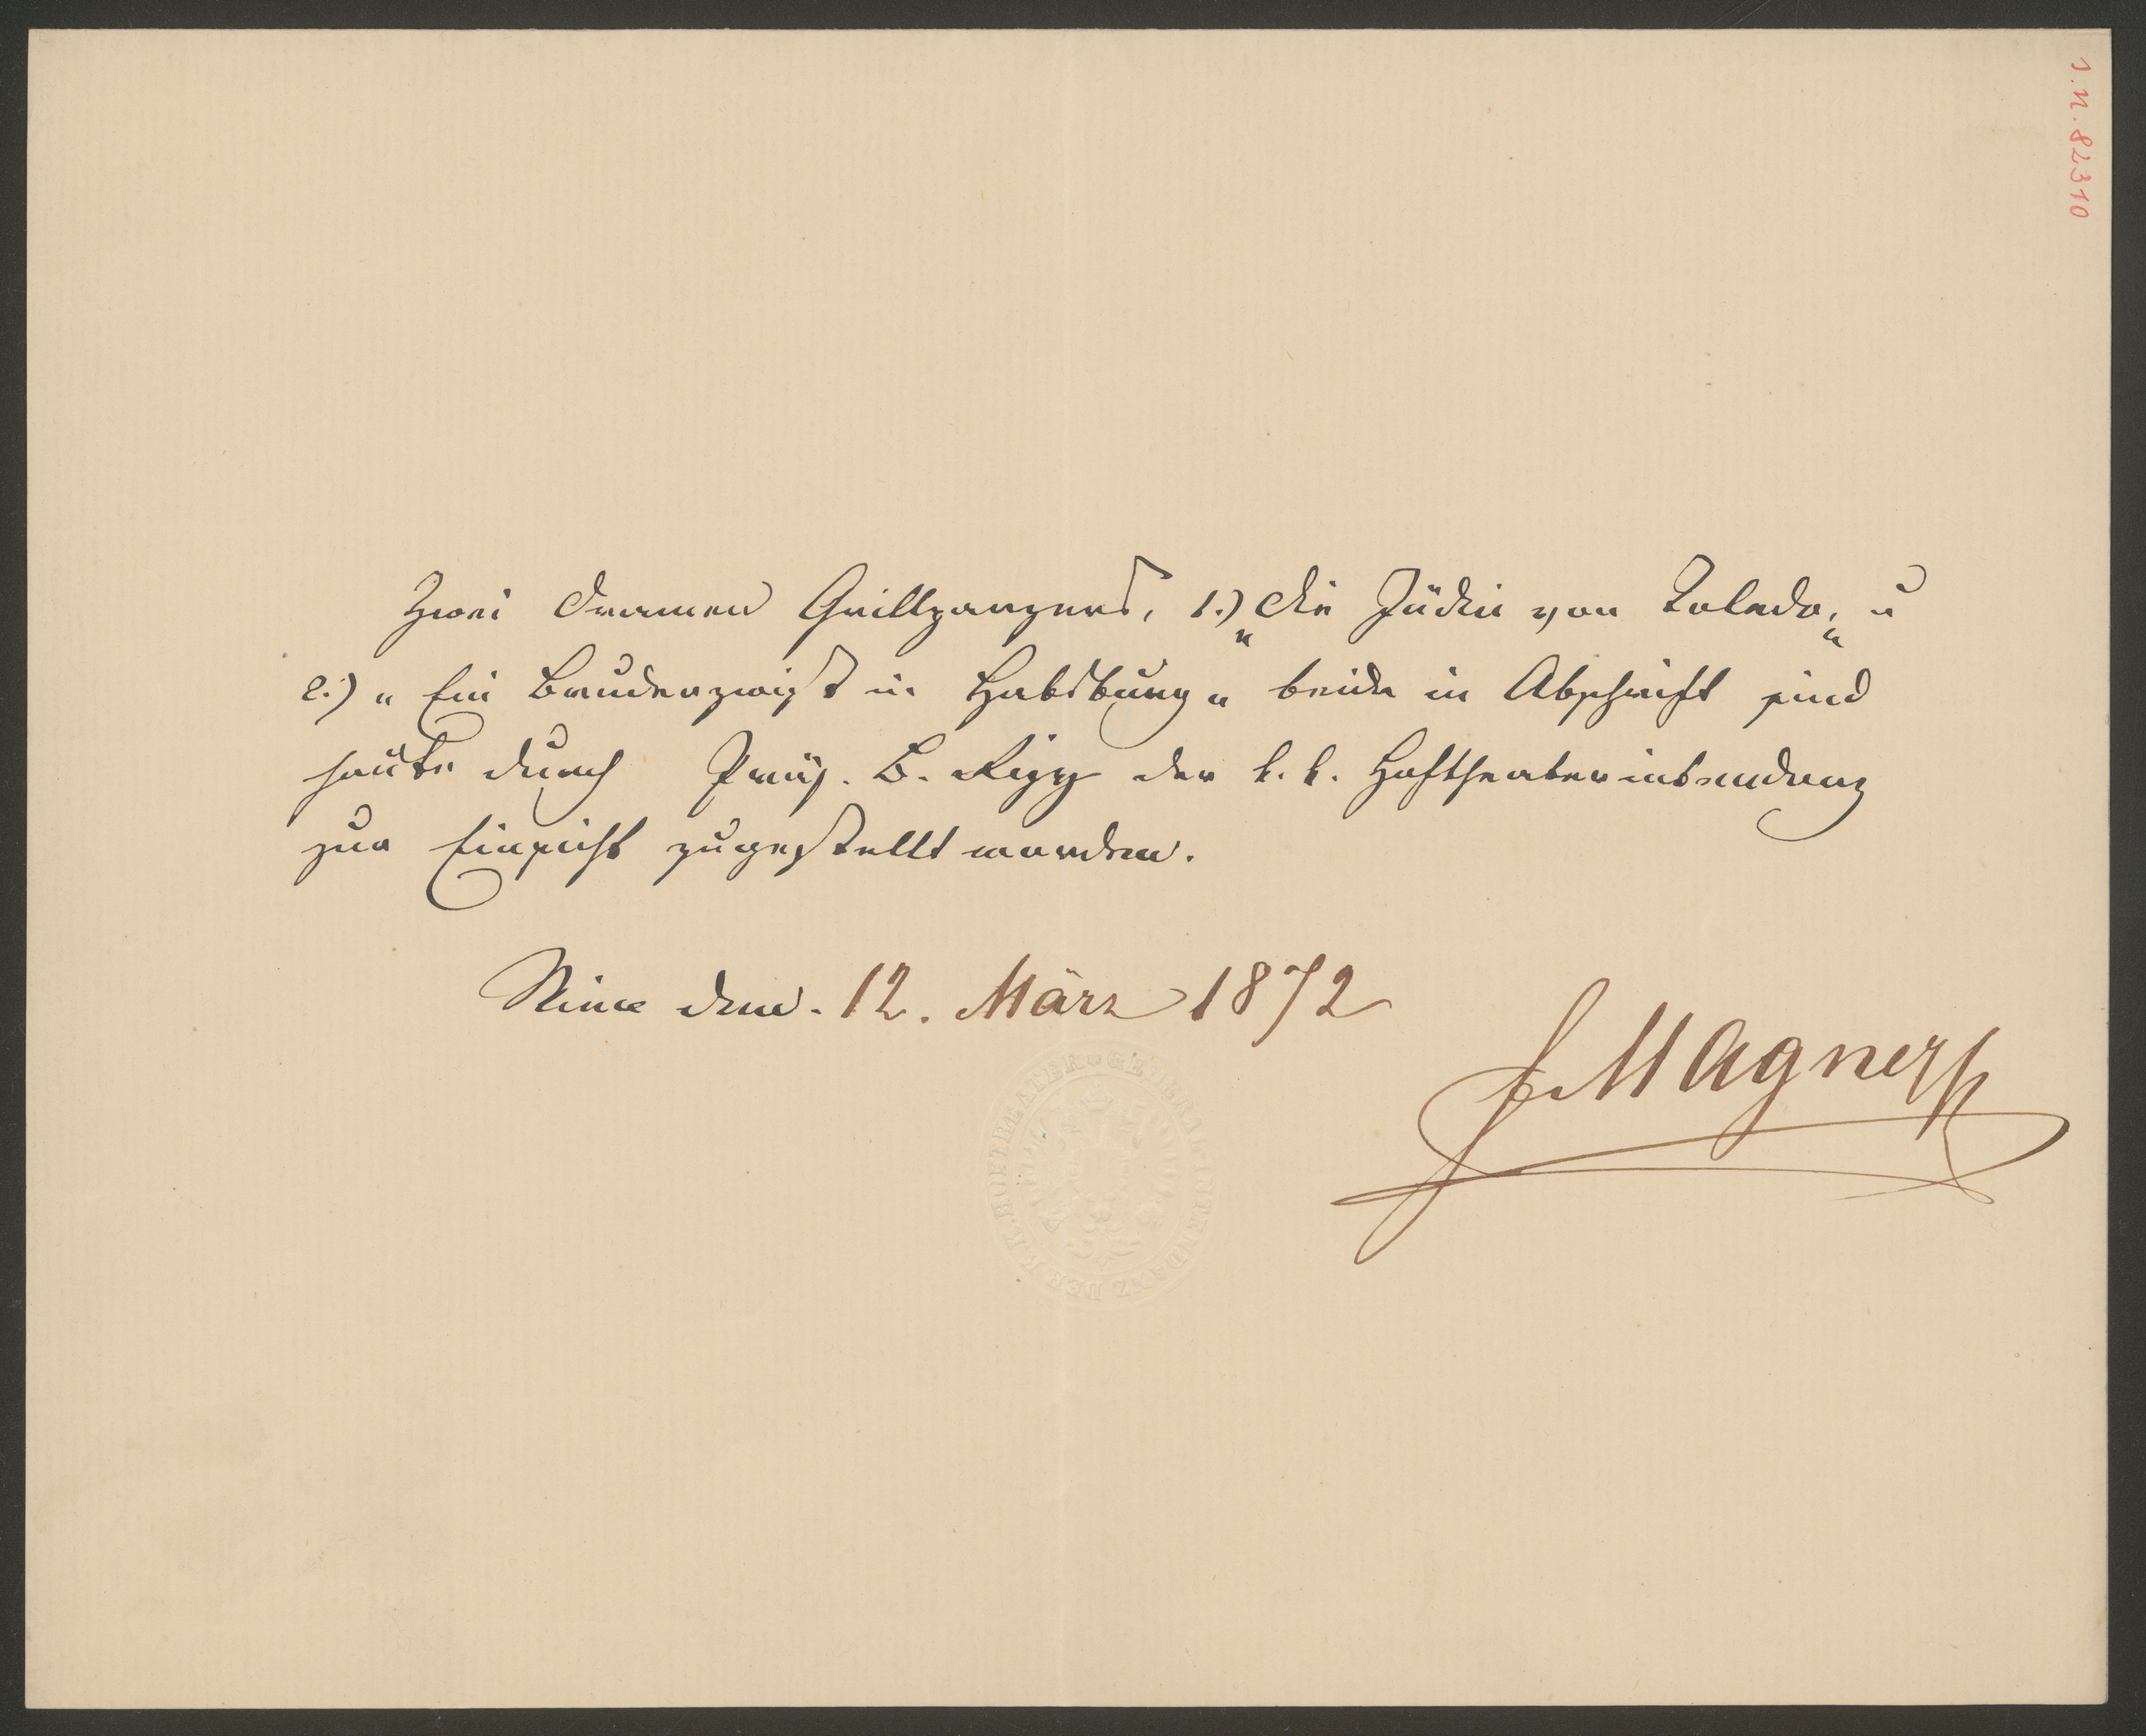 I.N. 82310
Zwei Dramen Grillparzers, 1.) „Die Jüdin von Toledo," u
2.) „Ein Bruderzwist in Habsburg" beide in Abschrift sind
heute durch B. Rizy der k. k. Hoftheaterintendanz
zur Einsicht zugestellt worden.
Wien den. 12. März 1872
Wagner
GENERAL-INTENDANZ DER K.K. HOFTHEATER